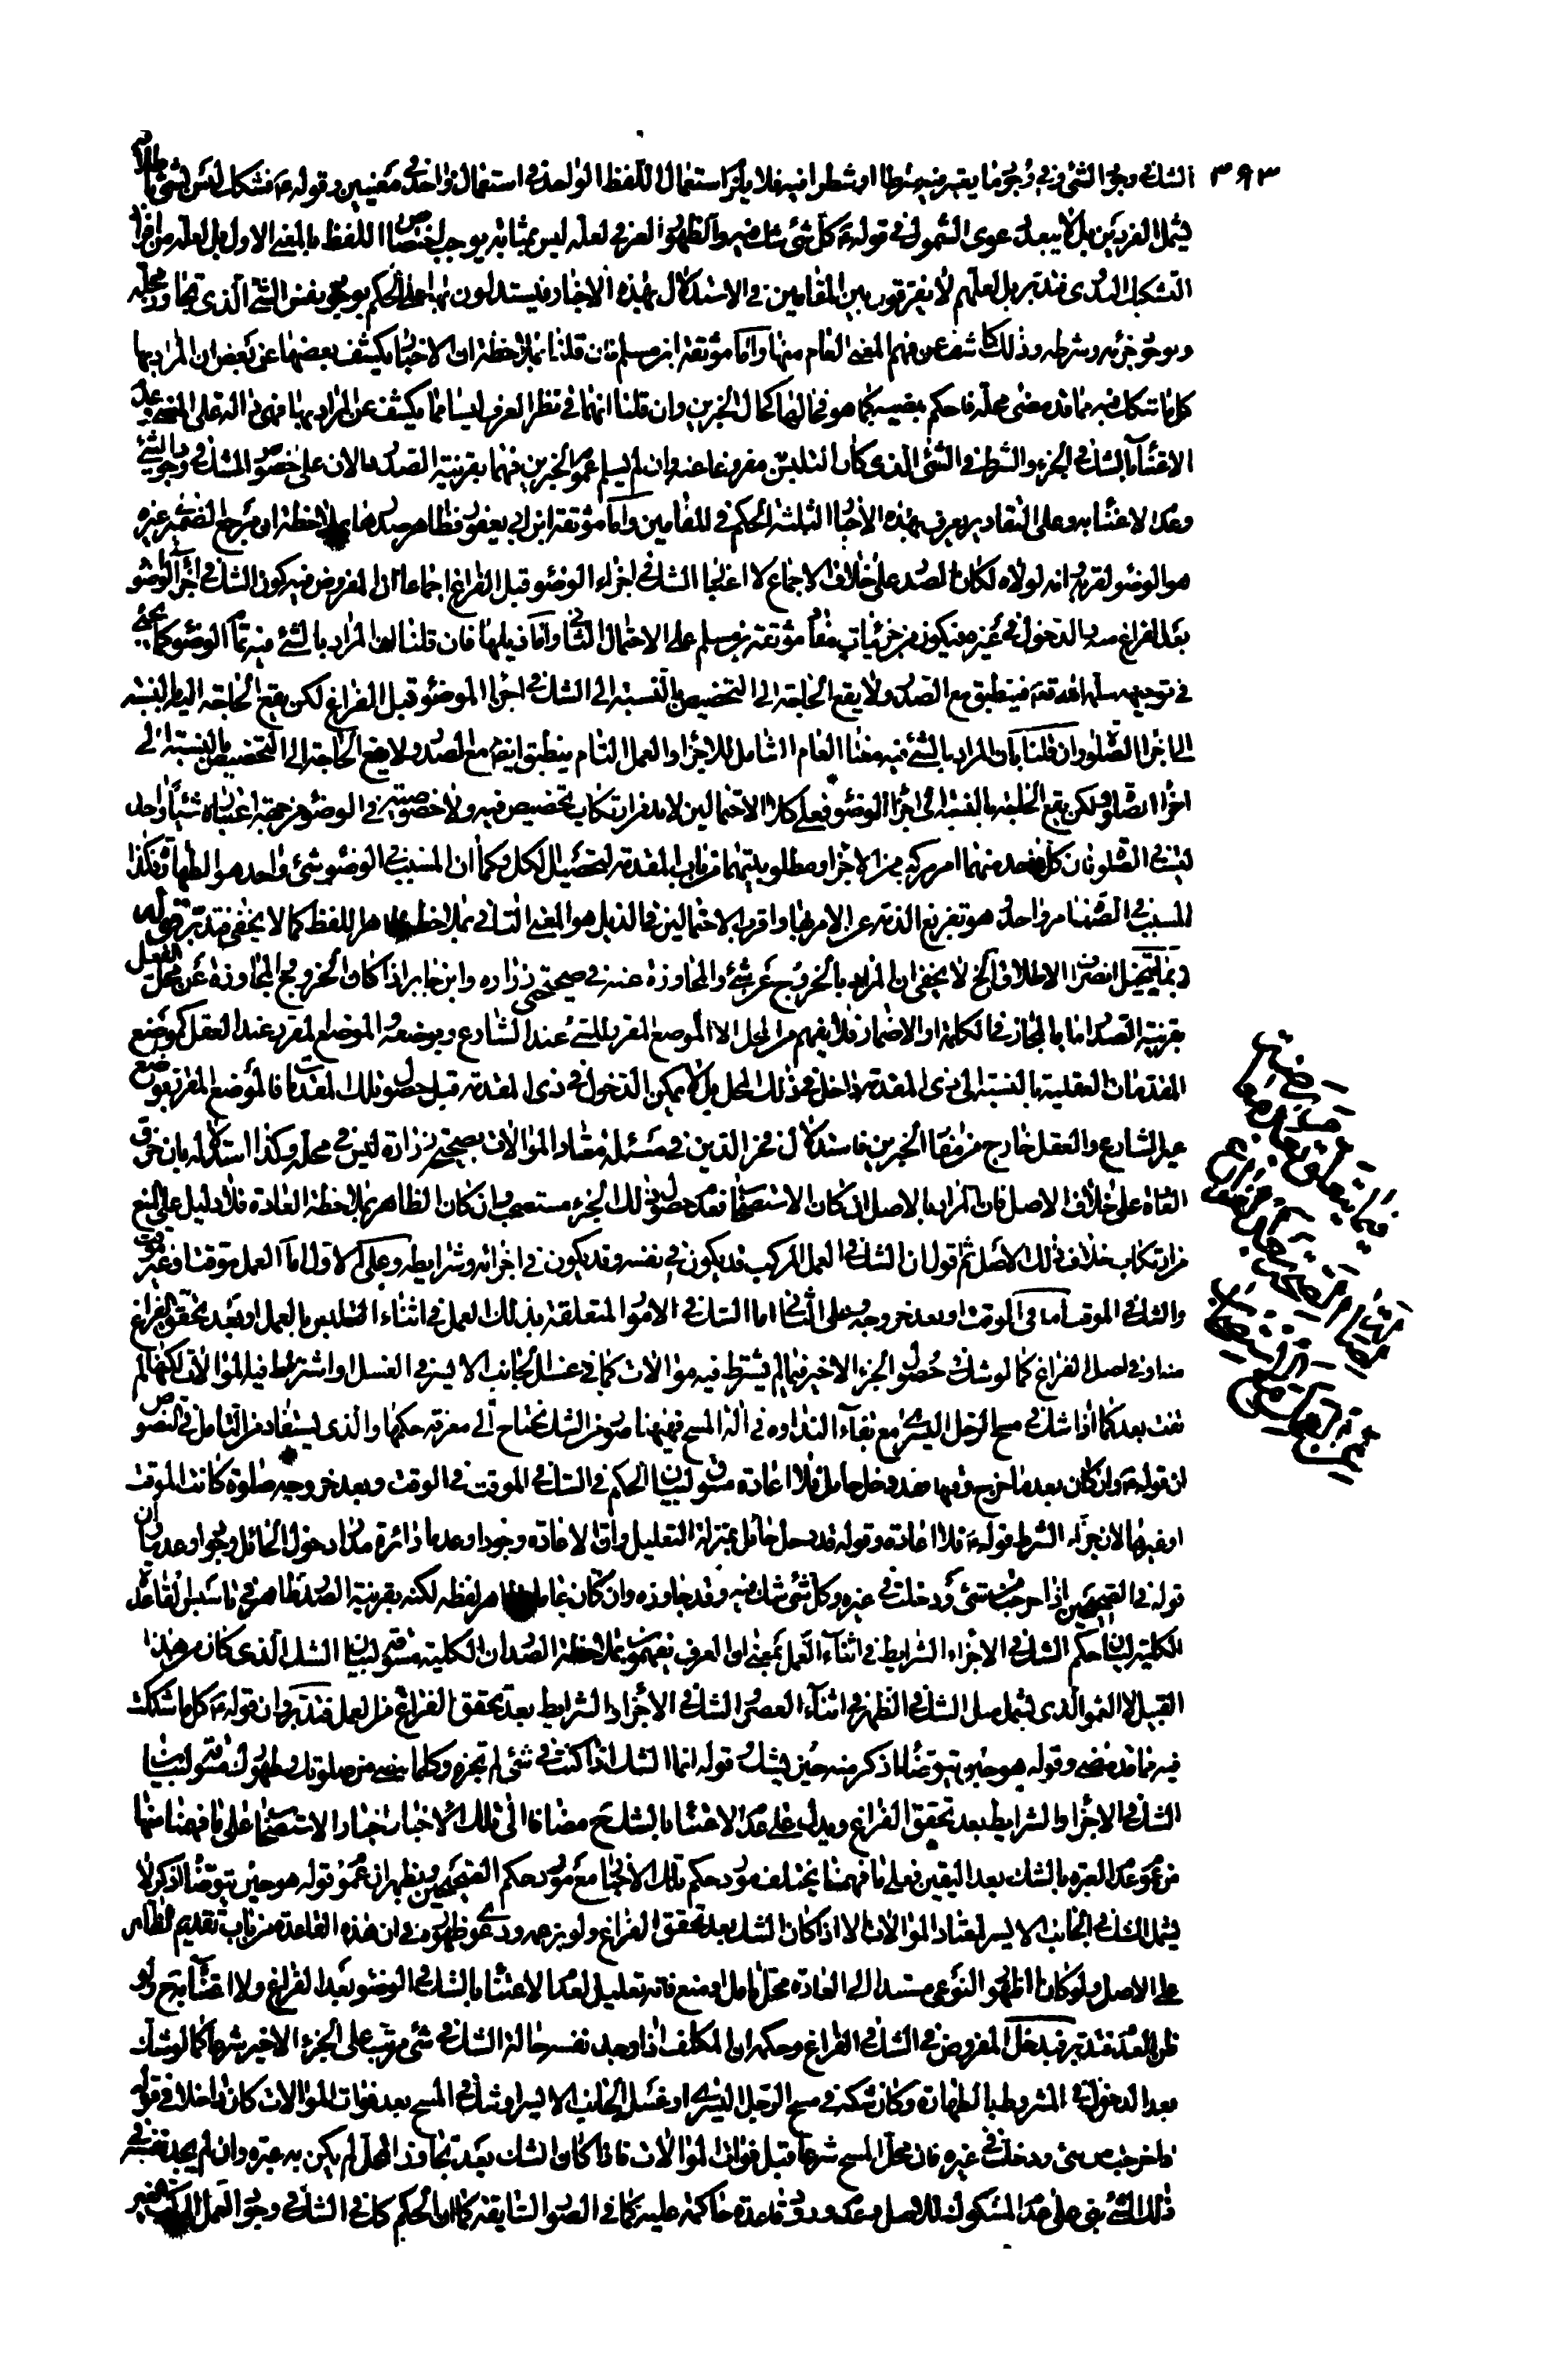 ٣٩٣
الشك في وجود الشئ وفي وجود ما يعتبر فيه شرطا او شطرا فيه فلا يلزم استعمال اللفظ الواحد في استعمال واحد في معنيين وقوله ع فشكك ليس بشئ
يشمل الفردين بل لا يبعد دعوى الشمول في قوله ع كل شئ شك فيه والظهور العرفي لعله ليس بمثابة يوجب اختصاص اللفظ بالمعنى الاول بل لعله من
التشكيك البدوي فتدبر بل لعلهم لا يفرقون بين المقامين في الاستدلال بهذه الاخبار فيستدلون بها على الحكم بوجود نفس الشئ الذي تجاوز محله
وبوجود جزئه وشرطه وذلك كاشف عن فهم المعنى العام منها واما موثقة ابن مسلم فان قلنا بملاحظة ان الاخبار يكشف بعضها عن بعض ان المراد بها
كل ما شككت فيه مما قد مضى محله فاحكم بمضيه كما هو فحالها كحال الخبرين وان قلنا انهما في نظر العرف ليسا مما يكشف عن المراد بها فهي دالة على المضي وعدم
الاعتناء بالشك في الجزء والشرط في الشئ الذي كان التلبس مفروغا عنه وان لم يسلم عموم الخبرين فهما بقرينة الصدر يدلان على خصوص الشك في وجود الشئ
وعدم الاعتناء به وعلى التقادير يعرف بهذه الاخبار الثلثة الحكم في المقامين واما موثقة ابن ابي يعفور فظاهر صدرها بملاحظة ان مرجع الضمير في غيره
هو الوضوء لقربه انه لولاه لكان الصدر على خلاف الاجماع لاعتبار الشك في اجزاء الوضوء قبل الفراغ اجماعا ان المفروض فيه كون الشك في اجزاء الوضوء
بعد الفراغ منه والدخول في غيره فيكون من جزئيات مفاد موثقة ابن مسلم على الاحتمال الثاني واما ذيلها فان قلنا ان المراد بالشئ فيه تمام الوضوء كما يجئ
في توجيهه سلمه الله تعالى فينطبق مع الصدر ولا يقع الحاجة الى التخصيص بالنسبة الى الشك في اجزاء الوضوء قبل الفراغ لكن يقع الحاجة اليه بالنسبة
الى اجزاء الصلوة وان قلنا بان المراد بالشئ فيه معناه العام الشامل للاجزاء والعمل التام ينطبق ايضا مع الصدر ولا يقع الحاجة الى التخصيص بالنسبة الى
اجزاء الصلوة لكن يقع الحاجة بالنسبة الى اجزاء الوضوء فعلى كلا الاحتمالين لا بد من ارتكاب تخصيص فيه ولا خصوصية في الوضوء من جهة اعتباره شيئا واحدا
ليست في الصلوة فان كل واحد منهما امر مركب من الاجزاء ومطلوبيتهما من باب المقدمة لتحصيل الكل وكما ان المسبب في الوضوء شئ واحد هو الطهارة فكذا
المسبب في الصلوة امر واحد هو تفريغ الذمة عن الامر بها واقرب الاحتمالين في الذيل هو المعنى الثاني بملاحظة ظاهر اللفظ كما لا يخفى فتدبر قوله
ربما يتخيل انصراف الاطلاق الخ لا يخفى ان المراد بالخروج عن شئ والمجاوزة عنه في صحيحتي زرارة وابن جابر اذا كان الخروج المجاوزة عن محل الفعل
بقرينة الصدر اما بالمجاز في الكلمة او الاضمار فلا يفهم من المحل الا الموضع المقرر للشئ عند الشارع وبوضعه او الموضع المقرر عند العقل كوضع
المقدمات العقلية بالنسبة الى ذي المقدمة داخل في ذلك المحل بل لا يمكن الدخول في ذي المقدمة قبل حصول تلك المقدمات فالموضع المقرر بوضع
غير الشارع والعقل خارج من مفاد الخبرين فاستدلال فخر الدين في مسئلة معتاد الموالات بصحيحة زرارة ليس في محله وكذا استدلاله بان خرق
العادة على خلاف الاصل فان المراد بالاصل ان كان الاستصحاب فعدم حصول ذلك الجزء مستصحب وان كان الظاهر بملاحظة العادة فلا دليل على المنع
من ارتكاب خلاف ذلك الاصل ثم اقول ان الشك في العمل المركب قد يكون في نفسه وقد يكون في اجزائه وشرايطه وعلى الاول اما العمل موقت او غير موقت
والشك في الموقت اما في الوقت او بعد خروجه وعلى الثاني اما الشك في الامور المتعلقة بذلك العمل في اثناء التلبس بالعمل او بعد تحقق الفراغ
منه او في اصل الفراغ كما لو شك في حصول الجزء الاخير فيما لم يشترط فيه موالات كما في غسل الجانب الايسر في الغسل او اشترط فيه الموالات لكنها لم
تفت بعد كما اذا شك في مسح الرجل اليسرى مع بقاء النداوة في آلة المسح فههنا صور من الشك نحتاج الى معرفة حكمها والذي يستفاد من التأمل في النصوص
ان قوله ع وان كان بعد ما خرج وقتها فقد دخل حائل فلا اعادة مسوق لبيان الحكم في الشك في الموقت في الوقت وبعد خروجه صلوة كانت الموقت
او غيرها لان جزاء الشرط قوله ع فلا اعادة وقوله قد دخل حائل بمنزلة التعليل وان الاعادة وجودا وعدما دائرة مدار دخول الحائل وجودا وعدما وان
قوله في الصحيحين اذا خرجت من شئ ودخلت في غيره وكل شئ شك فيه وقد جاوزه وان كان عاما ظاهر لفظه لكنه بقرينة الصدر ظاهر في تأسيس القاعدة
الكلية لبيان حكم الشك في الاجزاء الشرايط في اثناء العمل بمعنى ان العرف يفهمون بملاحظة الصدر ان الكلية مسوقة لبيان الشك الذي كان من هذا
القبيل لا العموم الذي يشمل مثل الشك في الظهر في اثناء العصر او الشك في الاجزاء والشرايط بعد تحقق الفراغ من العمل فتدبر وان قوله ع كل ما شككت
فيه مما قد مضى وقوله هو حين يتوضأ اذكر منه حين يشك وقوله انما الشك اذا كنت في شئ لم تجزه وكلما مضى من صلوتك وطهورك مسوق لبيان
الشك في الاجزاء والشرايط بعد تحقق الفراغ ويدل على عدم الاعتناء بالشك ح مضافا الى تلك الاخبار اخبار الاستصحاب على ما فهمنا منها
من عموم عدم العبرة بالشك بعد اليقين فعلى ما فهمنا يختلف مورد حكم تلك الاخبار مع مورد حكم الصحيحين ويظهر ان عموم قوله هو حين يتوضأ اذكر لا
يشمل الشك في الجانب الايسر لمعتاد الموالات الا اذا كان الشك بعد تحقق الفراغ ولو بزعمه ودعوى ظهوره في ان هذه القاعدة من باب تقديم الظاهر
على الاصل ولو كان الظهور النوعي مستندا الى العادة محل تأمل او منع فانه تعليل لعدم الاعتناء بالشك في الوضوء بعد الفراغ ولا اعتناء به ح ولو
ظن بالعدم فتدبر فيدخل المفروض في الشك في الفراغ وحكمه ان المكلف اذا وجد نفسه حالة الشك في شئ مرتب على الجزء الاخير شرعا كما لو شك
بعد الدخول في المشروط بالطهارة وكان شكه في مسح الرجل اليسرى او غسل الجانب الايسر او شك في المسح بعد فوات الموالات كان داخلا في قوله
اذا خرجت من شئ ودخلت في غيره فان محل المسح شرعا قبل فوات الموالات فاذا كان الشك بعد تجاوز المحل لم يكن به عبرة وان لم يجد نفسه في
ذلك الشئ بنى على عدم المشكوك للاصل وعدم ورود قاعدة حاكمة عليه كما في الصور السابقة كما ان الحكم كك في الشك في وجود العمل المركب الغير